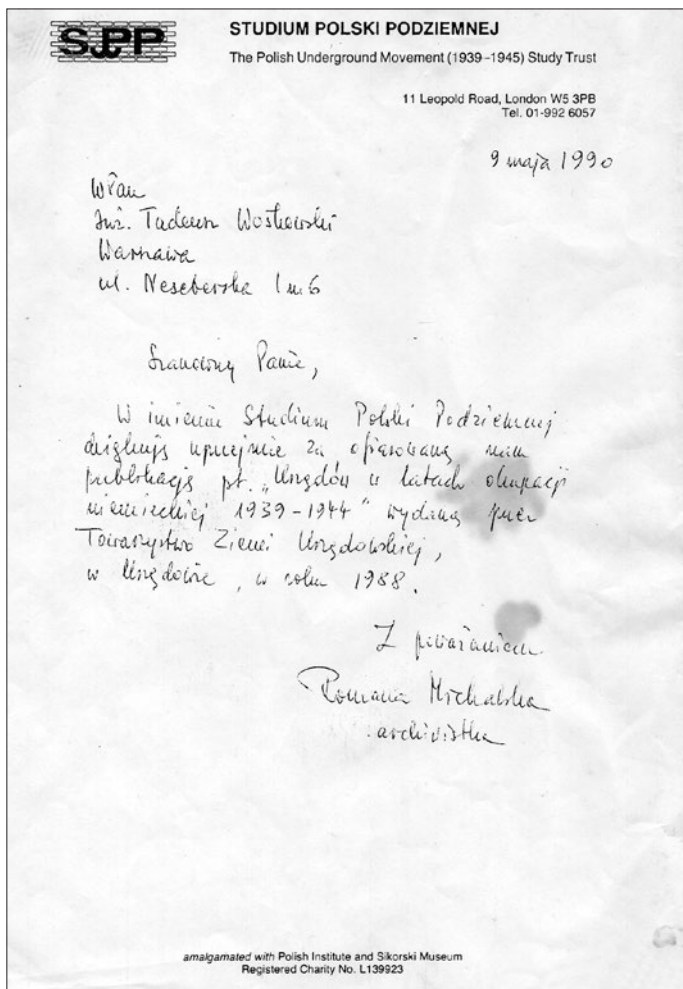 SPP
STUDIUM POLSKI PODZIEMNEJ
The Polish Underground Movement (1939–1945) Study Trust
11 Leopold Road, London W5 3PB
Tel. 01-992 6057
9 maja 1990
WPan
Inż. Tadeusz Wośkowski
Warszawa
ul. Neseberska 1 m. 6
Szanowny Panie,
W imieniu Studium Polski Podziemnej
dziękuję uprzejmie za ofiarowaną nam
publikację pt. „Urzędów w latach okupacji
niemieckiej 1939-1944" wydaną przez
Towarzystwo Ziemi Urzędowskiej,
w Urzędowie, w roku 1988.
Z poważaniem
Romana Michalska
archiwistka
amalgamated with Polish Institute and Sikorski Museum
Registered Charity No. L139923